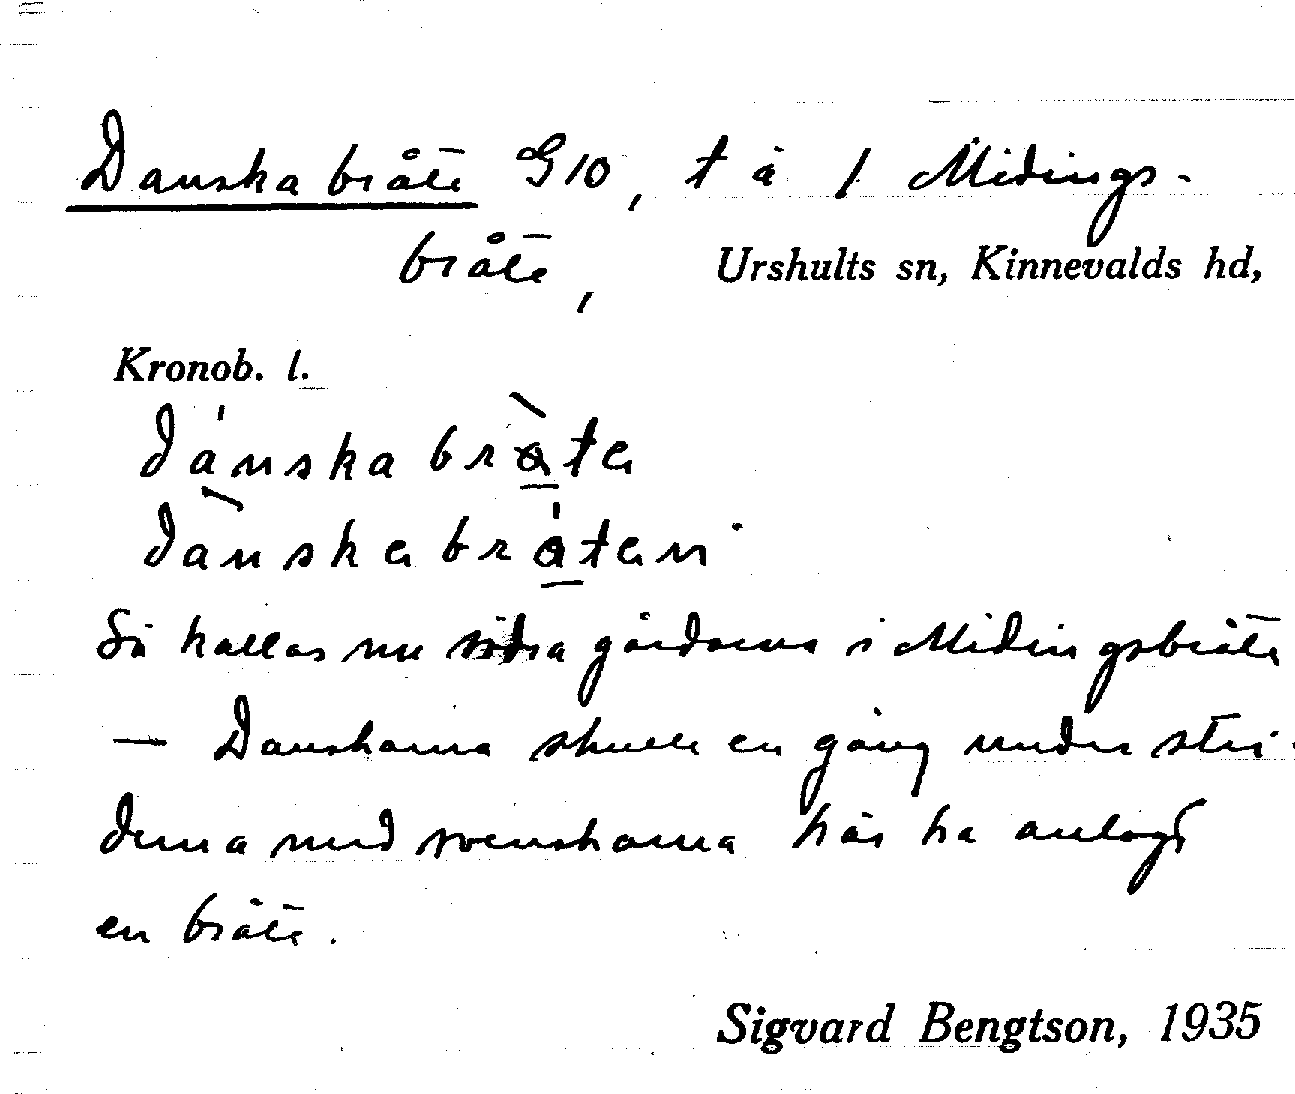 Danska bråte G10, t å 1 Midings-
bråte, Urshults sn, Kinnevalds hd,
Kronob. l.
dánska bràta
dànska bråtan
Så kallas nu södra gårdarna i Midingsbråte
— Danskarna skulle en gång under stri-
derna med svenskarna här ha anlagt
en bråte.
Sigvard Bengtson, 1935